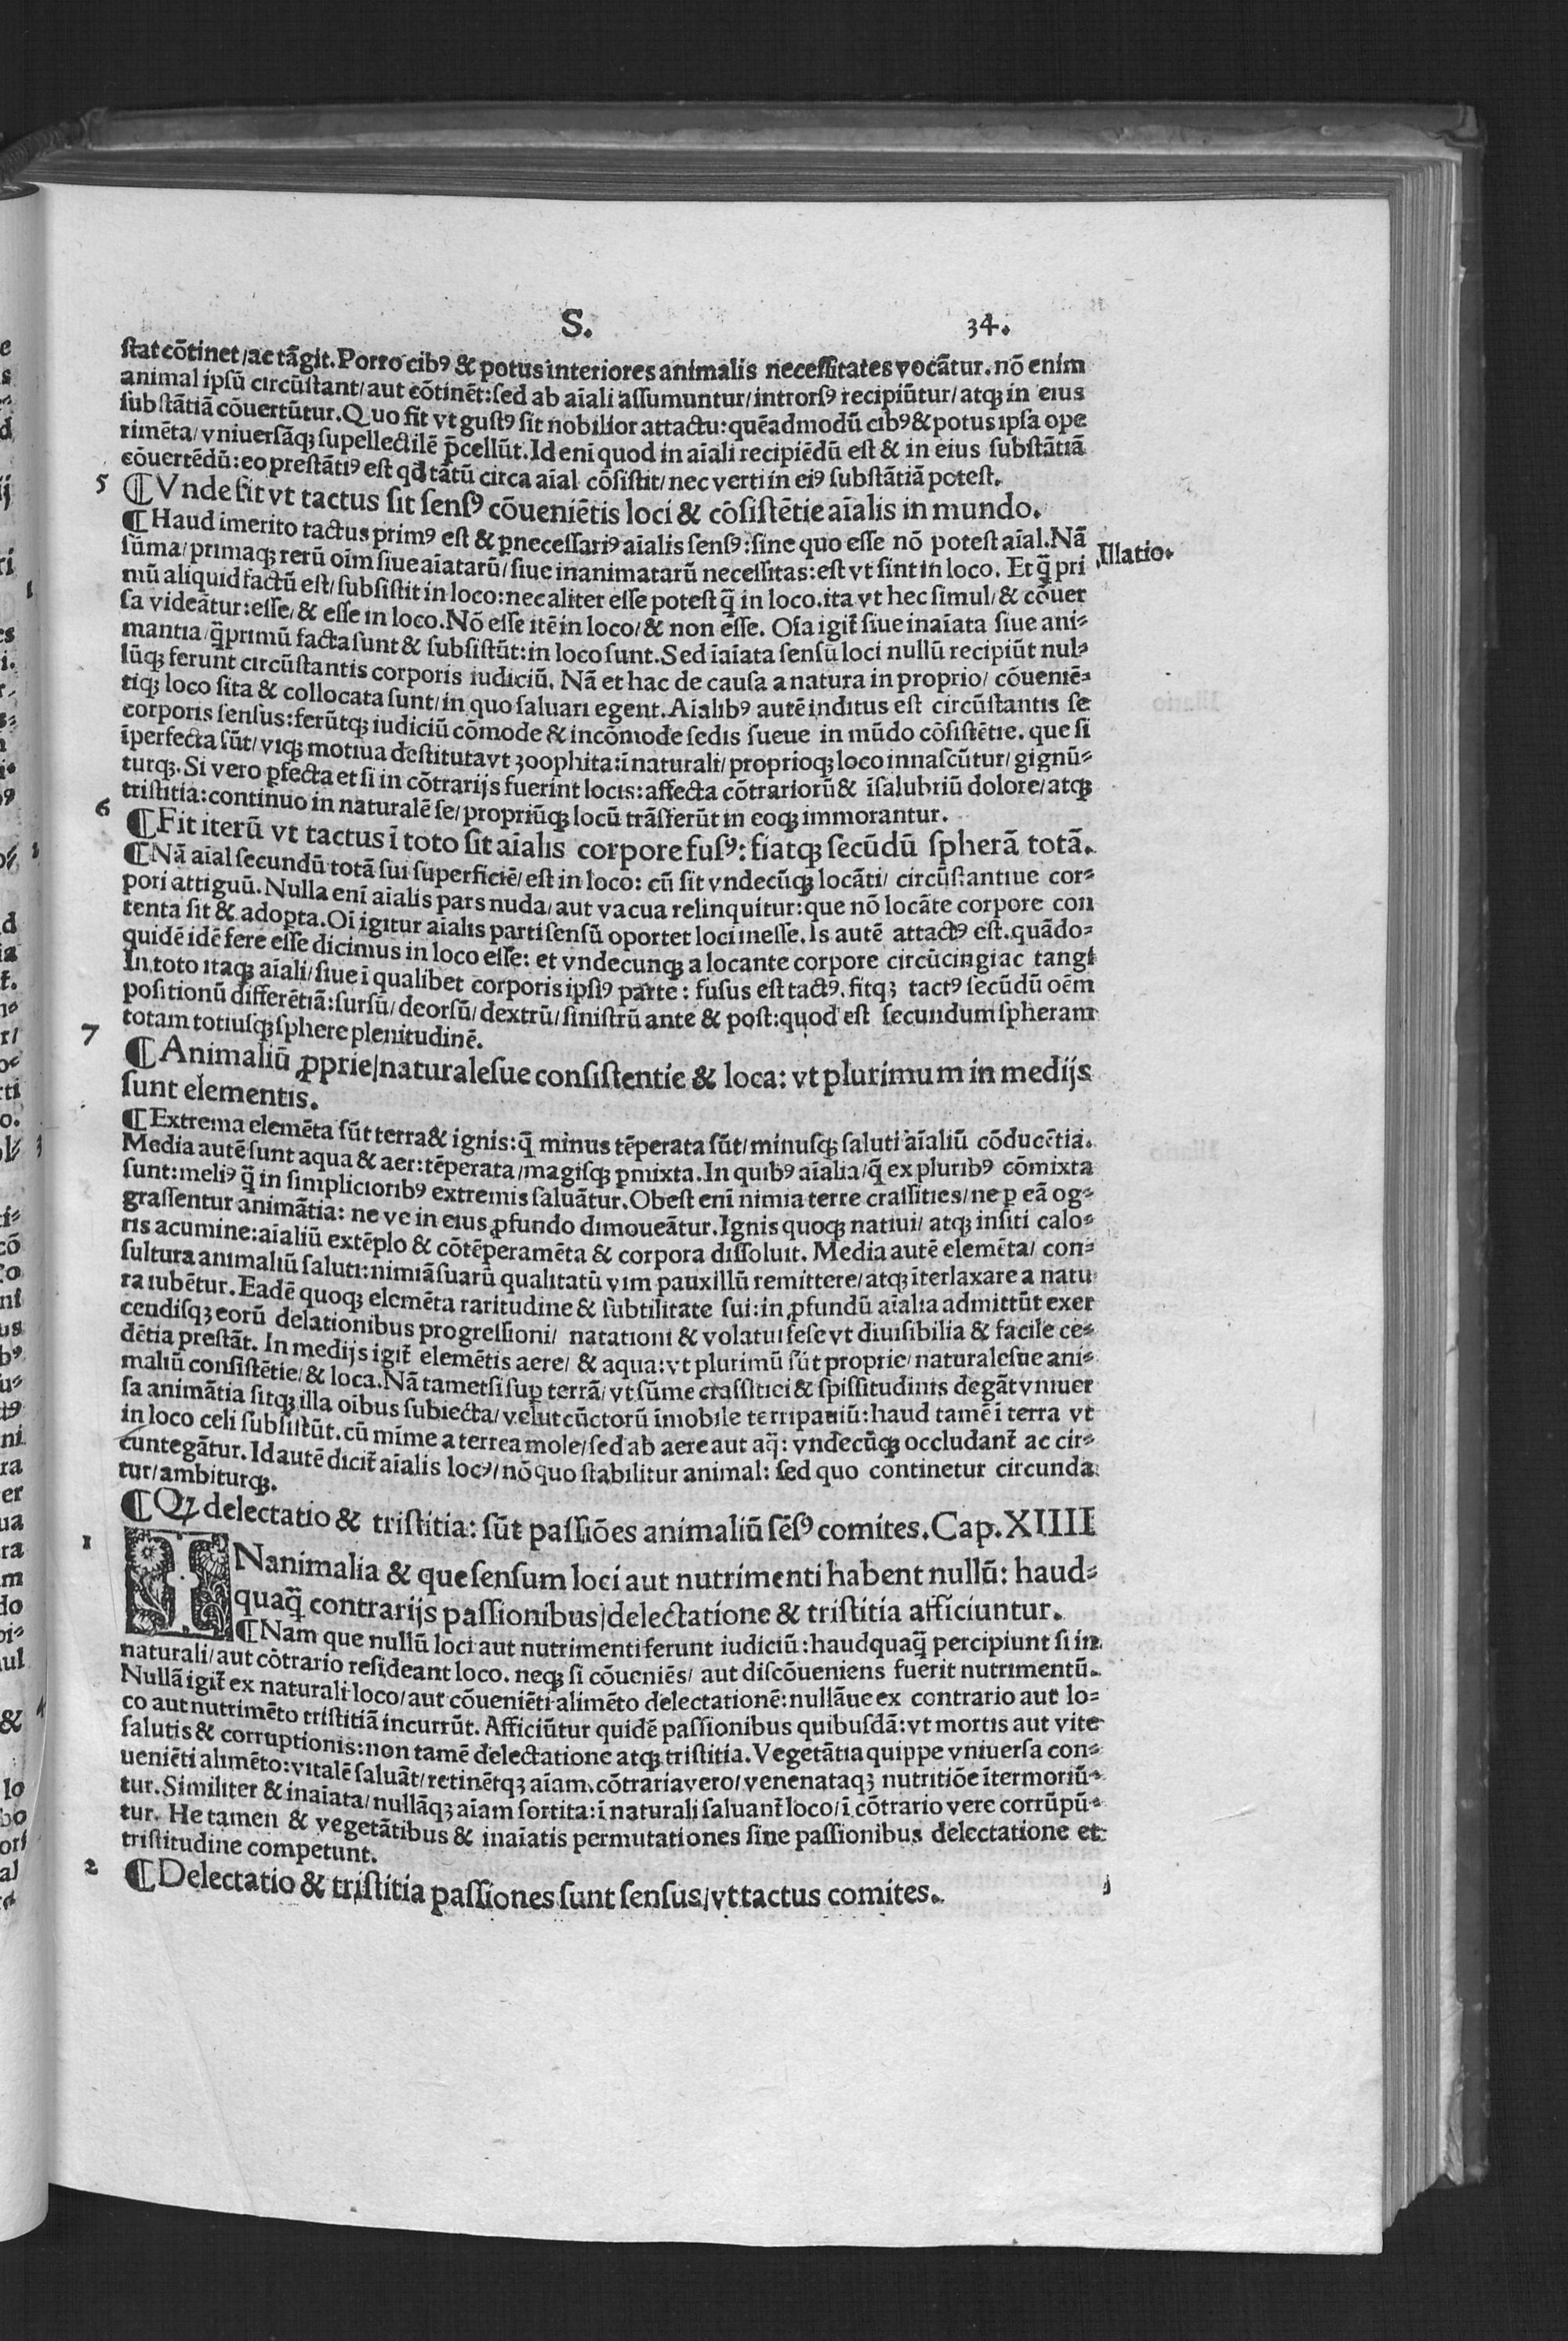 S. 34.
ſtat cōtinet/ac tāgit. Porro cibꝰ & potus interiores animalis neceſſitates vocātur. nō enim
animal ipſū circūſtant/aut cōtinēt: ſed ab aīali aſſumuntur/introrſꝰ recipiūtur/atqꝫ in eius
ſubſtātiā cōuertūtur. Quo fit vt guſtꝰ ſit nobilior attactu: quēadmodū cibꝰ & potus ipſa ope
rimēta/vniuerſāqꝫ ſupellectilē p̄cellūt. Id enī quod in aīali recipiēdū eſt & in eius ſubſtātiā
cōuertēdū: eo preſtātiꝰ eſt qd tātū circa aīal cōſiſtit/nec verti in eiꝰ ſubſtātiā poteſt.
5 ¶Vnde fit vt tactus ſit ſenſꝰ cōueniētis loci & cōſiſtētie aīalis in mundo.
¶Haud imerito tactus primꝰ eſt & ꝑneceſſariꝰ aīalis ſenſꝰ: ſine quo eſſe nō poteſt aīal. Nā
ſūma/primaqꝫ rerū oīm ſiue aīatarū/ſiue inanimatarū neceſſitas: eſt vt ſint in loco. Et q̄ pri
Illatio.
mū aliquid factū eſt/ſubſiſtit in loco: nec aliter eſſe poteſt q̄ in loco. ita vt hec ſimul/& cōuer
ſa videātur: eſſe/& eſſe in loco. Nō eſſe itē in loco/& non eſſe. Oīa igit̄ ſiue inaīata ſiue ani⸗
mantia/q̄primū facta ſunt & ſubſiſtūt: in loco ſunt. Sed īaīata ſenſū loci nullū recipiūt nul⸗
lūqꝫ ferunt circūſtantis corporis iudiciū. Nā et hac de cauſa a natura in proprio/cōueniē⸗
tiqꝫ loco ſita & collocata ſunt/in quo ſaluari egent. Aīalibꝰ autē inditus eſt circūſtantis ſe
corporis ſenſus: ferūtqꝫ iudiciū cōmode & incōmode ſedis ſueue in mūdo cōſiſtētie. que ſi
īperfecta ſūt/viqꝫ motiua deſtituta vt zoophita: ī naturali/proprioqꝫ loco innaſcūtur/gignū⸗
turqꝫ. Si vero ꝑfecta et ſi in cōtrarijs fuerint locis: affecta cōtrariorū & īſalubriū dolore/atqꝫ
triſtitia: continuo in naturalē ſe/propriūqꝫ locū trāſferūt in eoqꝫ immorantur.
6 ¶Fit iterū vt tactus ī toto ſit aīalis corpore fuſꝰ: fiatqꝫ ſecūdū ſpherā totā.
¶Nā aīal ſecundū totā ſui ſuperficiē/eſt in loco: cū ſit vndecūqꝫ locāti/circūſtantiue cor⸗
pori attiguū. Nulla enī aīalis pars nuda/aut vacua relinquitur: que nō locāte corpore con
tenta ſit & adopta. Oī igitur aīalis parti ſenſū oportet loci ineſſe. Is autē attactꝰ eſt. quādo⸗
quidē idē fere eſſe dicimus in loco eſſe: et vndecunqꝫ a locante corpore circūcingi ac tangi
In toto itaqꝫ aīali/ſiue ī qualibet corporis ipſiꝰ parte: fuſus eſt tactꝰ. fitqꝫ tactꝰ ſecūdū oēm
poſitionū differētiā: ſurſū/deorſū/dextrū/ſiniſtrū ante & poſt: quod eſt ſecundum ſpheram
totam totiuſqꝫ ſphere plenitudinē.
7 ¶Animaliū ꝓprie/naturaleſue conſiſtentie & loca: vt plurimum in medijs
ſunt elementis.
¶Extrema elemēta ſūt terra & ignis: q̄ minus tēperata ſūt/minuſqꝫ ſaluti aīaliū cōducētia.
Media autē ſunt aqua & aer: tēperata/magiſqꝫ ꝑmixta. In quibꝰ aīalia/q̄ ex pluribꝰ cōmixta
ſunt: meliꝰ q̄ in ſimplicioribꝰ extremis ſaluātur. Obeſt enī nimia terre craſſities/ne ꝑ eā og⸗
graſſentur animātia: ne ve in eius ꝓfundo dimoueātur. Ignis quoqꝫ natiui/atqꝫ inſiti calo⸗
ris acumine: aīaliū extēplo & cōtēperamēta & corpora diſſoluit. Media autē elemēta/con⸗
ſultura animaliū ſaluti: nimiā ſuarū qualitatū vim pauxillū remittere/atqꝫ īterlaxare a natu
ra iubētur. Eadē quoqꝫ elemēta raritudine & ſubtilitate ſui: in ꝓfundū aīalia admittūt exer
cendiſqꝫ eorū delationibus progreſſioni/natationi & volatui ſeſe vt diuiſibilia & facile ce⸗
dētia preſtāt. In medijs igit̄ elemētis aere/& aqua: vt plurimū ſūt proprie/naturaleſue ani⸗
maliū conſiſtētie/& loca. Nā tametſi ſuꝑ terrā/vt ſūme craſſitiei & ſpiſſitudinis degāt vniuer
ſa animātia ſitqꝫ illa oībus ſubiecta/velut cūctorū īmobile terripauiū: haud tamē ī terra vt
in loco celi ſubſiſtūt. cū mīme a terrea mole/ſed ab aere aut aq̄: vndecūqꝫ occludant̄ ac cir⸗
cuntegātur. Id autē dicit̄ aīalis locꝰ/nō quo ſtabilitur animal: ſed quo continetur circunda
tur/ambiturqꝫ.
¶Qꝫ delectatio & triſtitia: ſūt paſſiōes animaliū ſēſꝰ comites. Cap. XIIII
1 INanimalia & que ſenſum loci aut nutrimenti habent nullū: haud⸗
quaq̄ contrarijs paſſionibus/delectatione & triſtitia afficiuntur.
¶Nam que nullū loci aut nutrimenti ferunt iudiciū: haudquaq̄ percipiunt ſi in
naturali/aut cōtrario reſideant loco. neqꝫ ſi cōueniēs/aut diſcōueniens fuerit nutrimentū.
Nullā igit̄ ex naturali loco/aut cōueniēti alimēto delectationē: nullāue ex contrario aut lo⸗
co aut nutrimēto triſtitiā incurrūt. Afficiūtur quidē paſſionibus quibuſdā: vt mortis aut vite
ſalutis & corruptionis: non tamē delectatione atqꝫ triſtitia. Vegetātia quippe vniuerſa con⸗
ueniēti alimēto: vitalē ſaluāt/retinētqꝫ aīam. cōtraria vero/venenataqꝫ nutritiōe ītermoriū⸗
tur. Similiter & inaīata/nullāqꝫ aīam ſortita: ī naturali ſaluant̄ loco/ī cōtrario vere corrūpū⸗
tur. He tamen & vegetātibus & inaīatis permutationes ſine paſſionibus delectatione et
triſtitudine competunt.
2 ¶Delectatio & triſtitia paſſiones ſunt ſenſus/vt tactus comites.